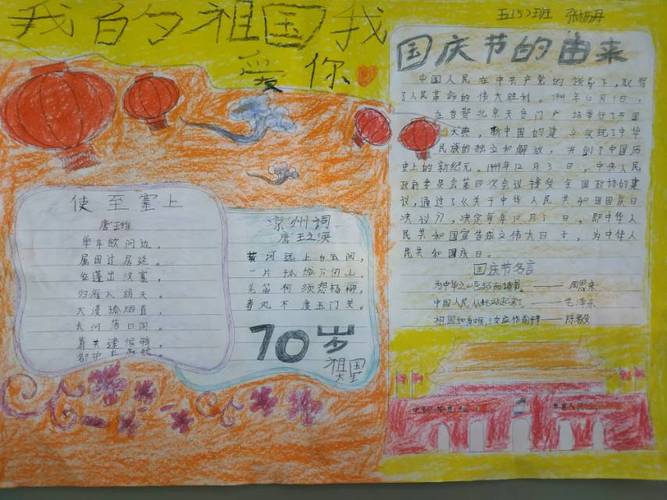 我的祖国我
爱你
五(5)班
国庆节的由来
中国人民在中共产党的领导下,取得
了人民革命的伟大胜利。1949年10月1日,
在首都北京天安门广场举行了开国
大典,新中国的建立实现了中华
民族的独立和解放,开创了中国历
史上的新纪元。1949年12月3日,中央人民
政府委员会第四次会议接受全国政协的建
议,通过了《关于中华人民共和国国庆日
决议》,决定每年10月1日,即中华人
民共和国宣告成立伟大日子,为中华人
民共和国庆日。
国庆节名言
为中华之崛起而读书 —— 周恩来
中国人民从此站起来了 —— 毛泽东
使至塞上
唐王维
单车欲问边,
属国过居延。
征蓬出汉塞,
归雁入胡天。
大漠孤烟直,
长河落日圆。
萧关逢候骑,
凉州词
唐王之涣
黄河远上白云间,
一片孤城万仞山。
羌笛何须怨杨柳,
春风不度玉门关。
70岁
祖国